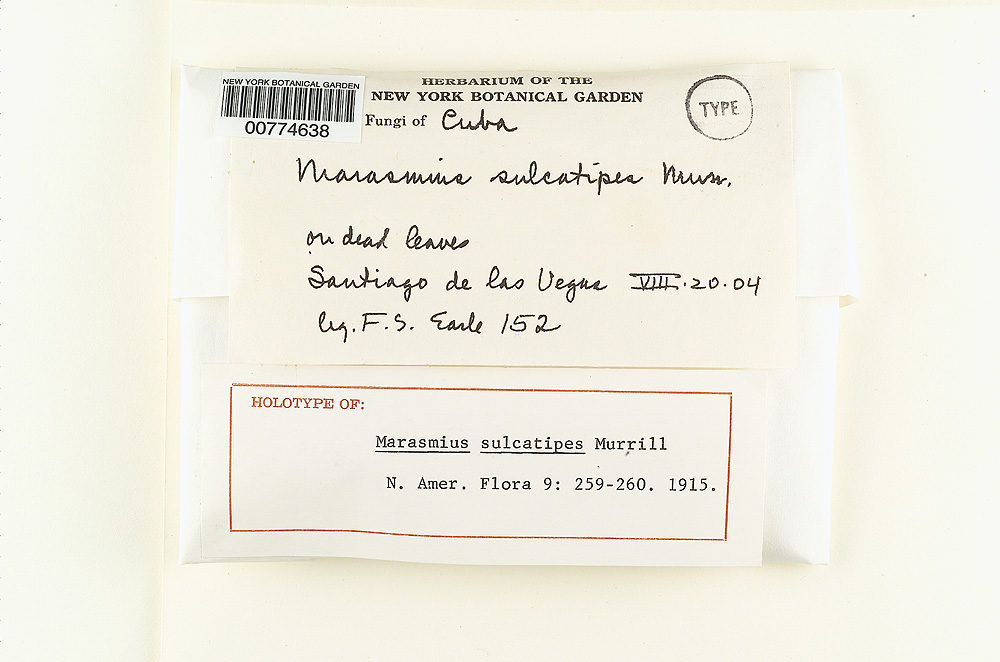 NEW YORK BOTANICAL GARDEN
00774638
HERBARIUM OF THE
NEW YORK BOTANICAL GARDEN
TYPE
Fungi of Cuba
Marasmius sulcatipes Murr.
on dead leaves
Santiago de las Vegas VIII.20.04
leg. F. S. Earle 152
HOLOTYPE OF:
Marasmius sulcatipes Murrill
N. Amer. Flora 9: 259-260. 1915.